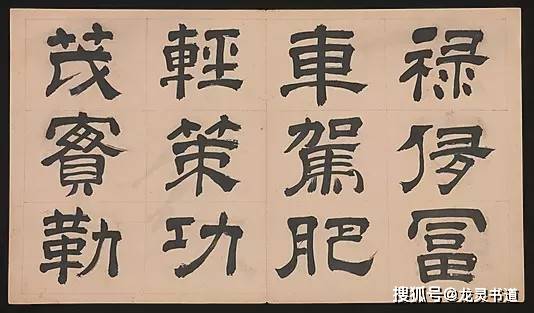 禄侈冨
車駕肥
輕策功
茂實勒
搜狐号@龙灵书道